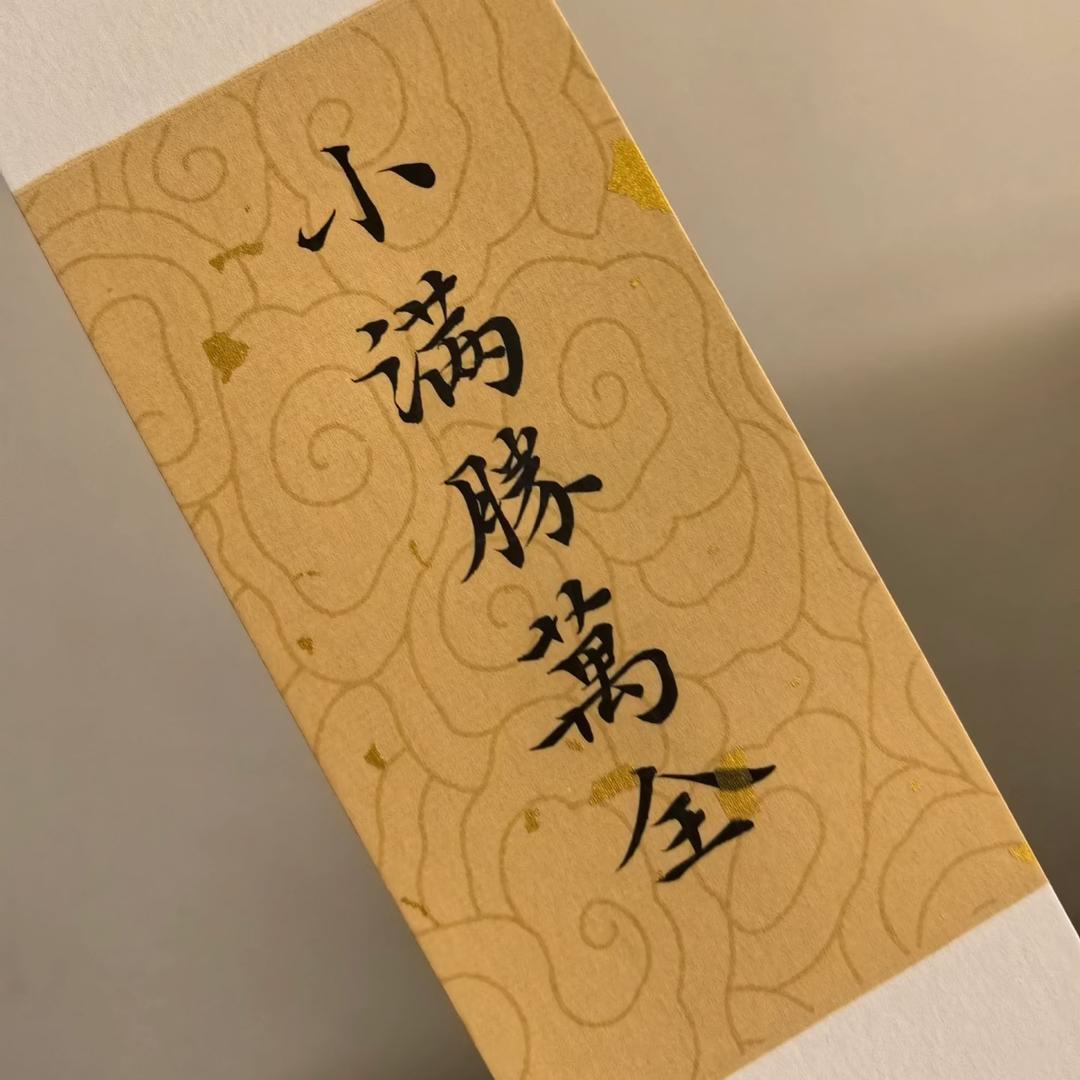 小満勝萬全